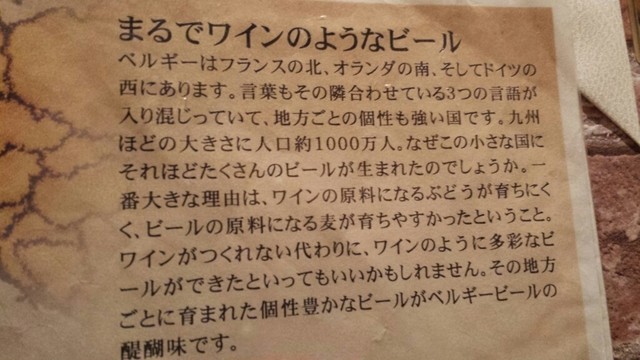 まるでワインのようなビール
ベルギーはフランスの北、オランダの南、そしてドイツの
西にあります。言葉もその隣合わせている3つの言語が
入り混じっていて、地方ごとの個性も強い国です。九州
ほどの大きさに人口約1000万人。なぜこの小さな国に
それほどたくさんのビールが生まれたのでしょうか。一
番大きな理由は、ワインの原料になるぶどうが育ちにく
く、ビールの原料になる麦が育ちやすかったということ。
ワインがつくれない代わりに、ワインのように多彩なビ
ールができたといってもいいかもしれません。その地方
ごとに育まれた個性豊かなビールがベルギービールの
醍醐味です。